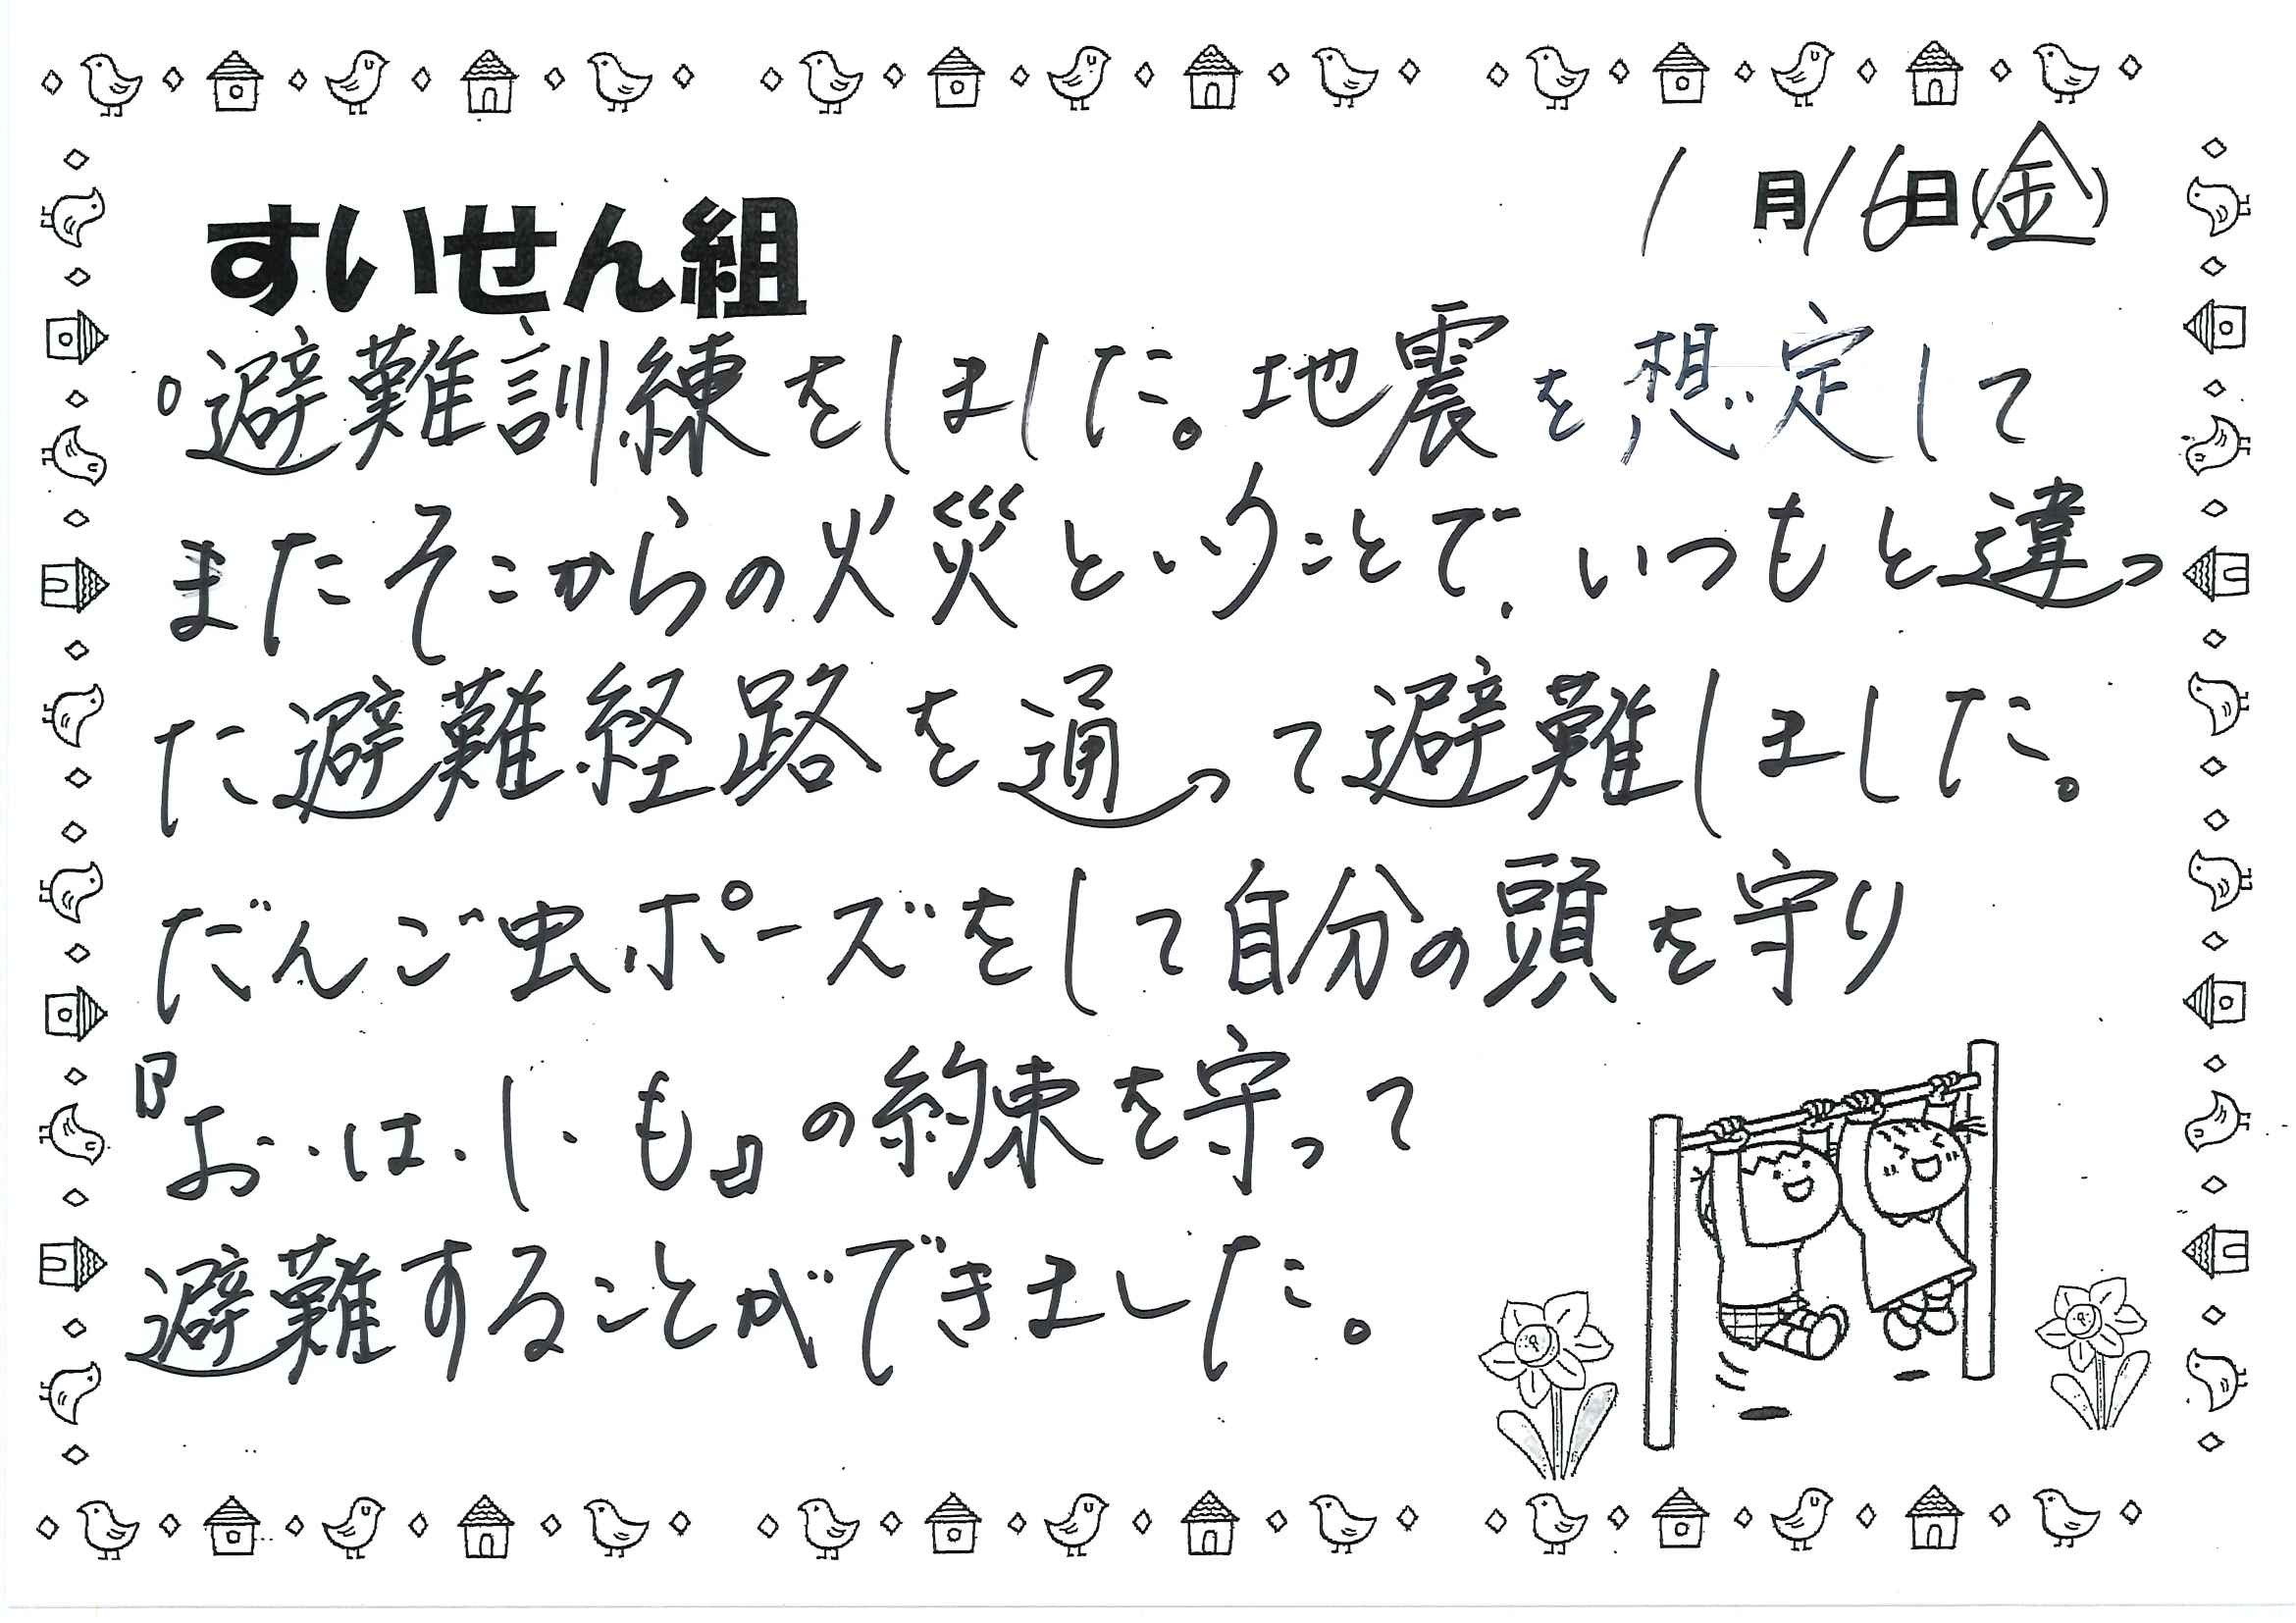 1月16日(金)
すいせん組
○避難訓練をしました。地震を想定して
またそこからの火災ということで、いつもと違っ
た避難経路を通って避難しました。
だんご虫ポーズをして自分の頭を守り
『お・は・し・も』の約束を守って
避難することができました。